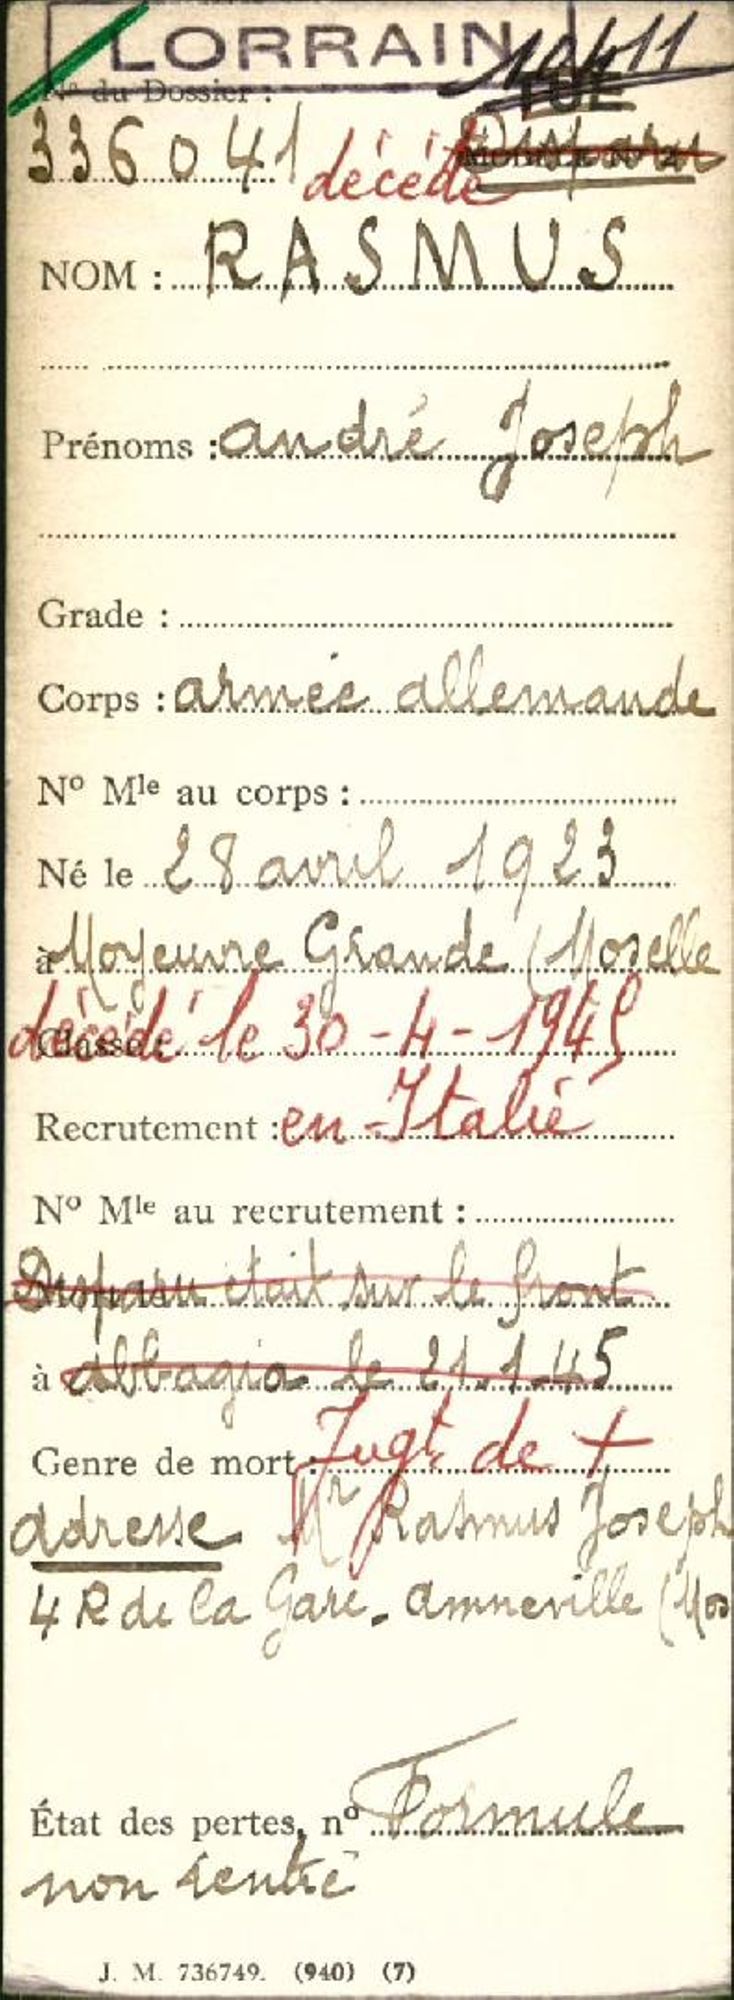 LORRAIN
10411
N° du Dossier :
TUÉ
336041 décédé Disparu
NOM : RASMUS
Prénoms : andré Joseph
Grade :
Corps : armée allemande
N° Mle au corps :
Né le 28 avril 1923
à Moyeuvre Grande (Moselle
Classe : décédé le 30-4-1945
Recrutement : en Italie
N° Mle au recrutement :
Disparu était sur le front
à abbagia le 21.1.45
Genre de mort : Jugt de +
adresse Mr Rasmus Joseph
4 R de la Gare - amneville (Mos
État des pertes, n° Formule
non rentré
J. M. 736749. (940) (7)